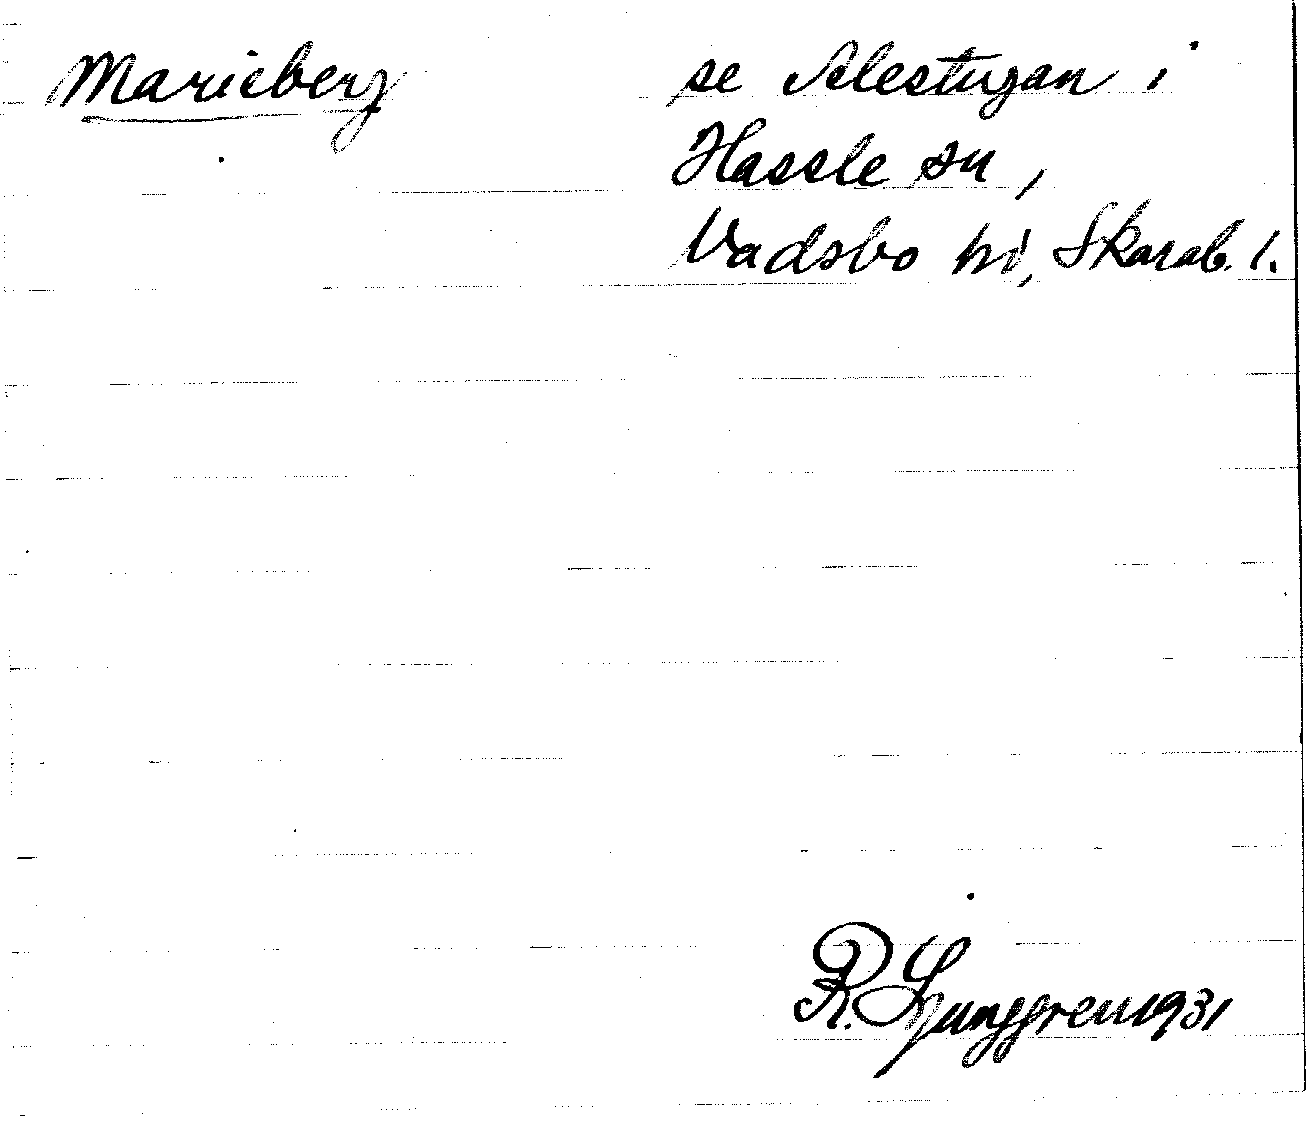 Marieberg
se Alestugan i
Hassle sn,
Vadsbo hd, Skarab. l.
R. Ljunggren 1931